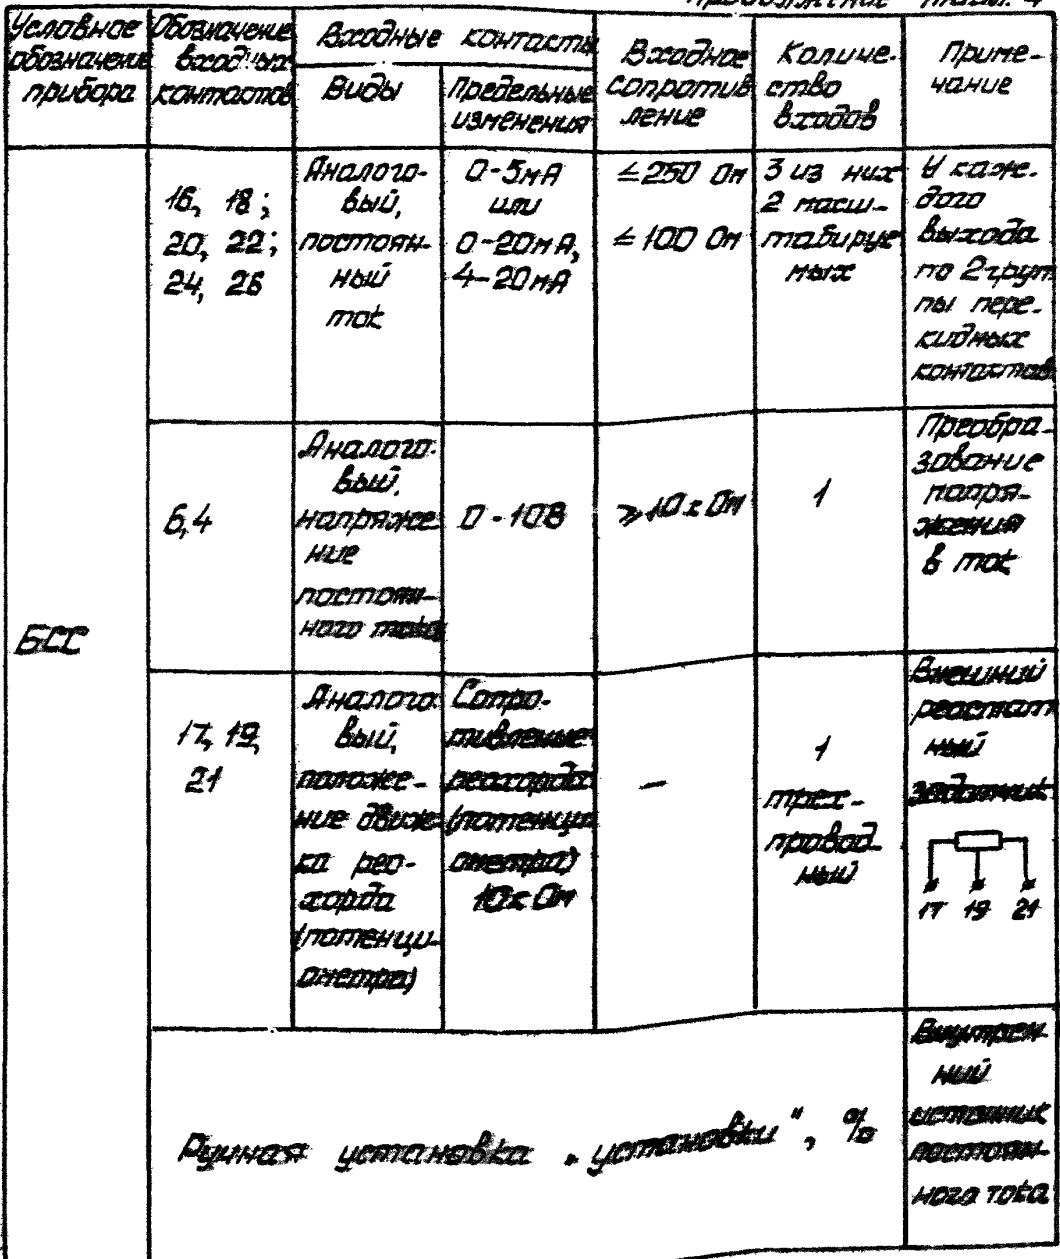 Продолжение табл. 4
Условное
обозначение
прибора
Обозначение
входных
контактов
Входные контакты
Виды
Предельные
изменения
Входное
сопротив
ление
Количе-
ство
входов
Приме-
чание
БСС
16, 18;
20, 22;
24, 26
Аналого-
вый,
постоян-
ный
ток
0-5мА
или
0-20мА,
4-20мА
≤250 Ом
≤100 Ом
3 из них
2 масш-
табируе
мых
У каж-
дого
выхода
по 2 груп
пы пере-
кидных
контактов
6,4
Аналого-
вый,
напряже
ние
постоян-
ного тока
0-10В
≥10к Ом
1
Преобра-
зование
напря-
жения
в ток
17, 19,
21
Аналого
вый,
положе-
ние движ
ка рео-
хорда
(потенци-
ометра)
Сопро-
тивление
реохорда
(потенци
ометра)
10к Ом
—
1
трех-
провод-
ный
Внешний
реостат
ный
задатчик
17 19 21
Ручная установка „установки", %
Внутрен
ний
источник
постоян-
ного тока